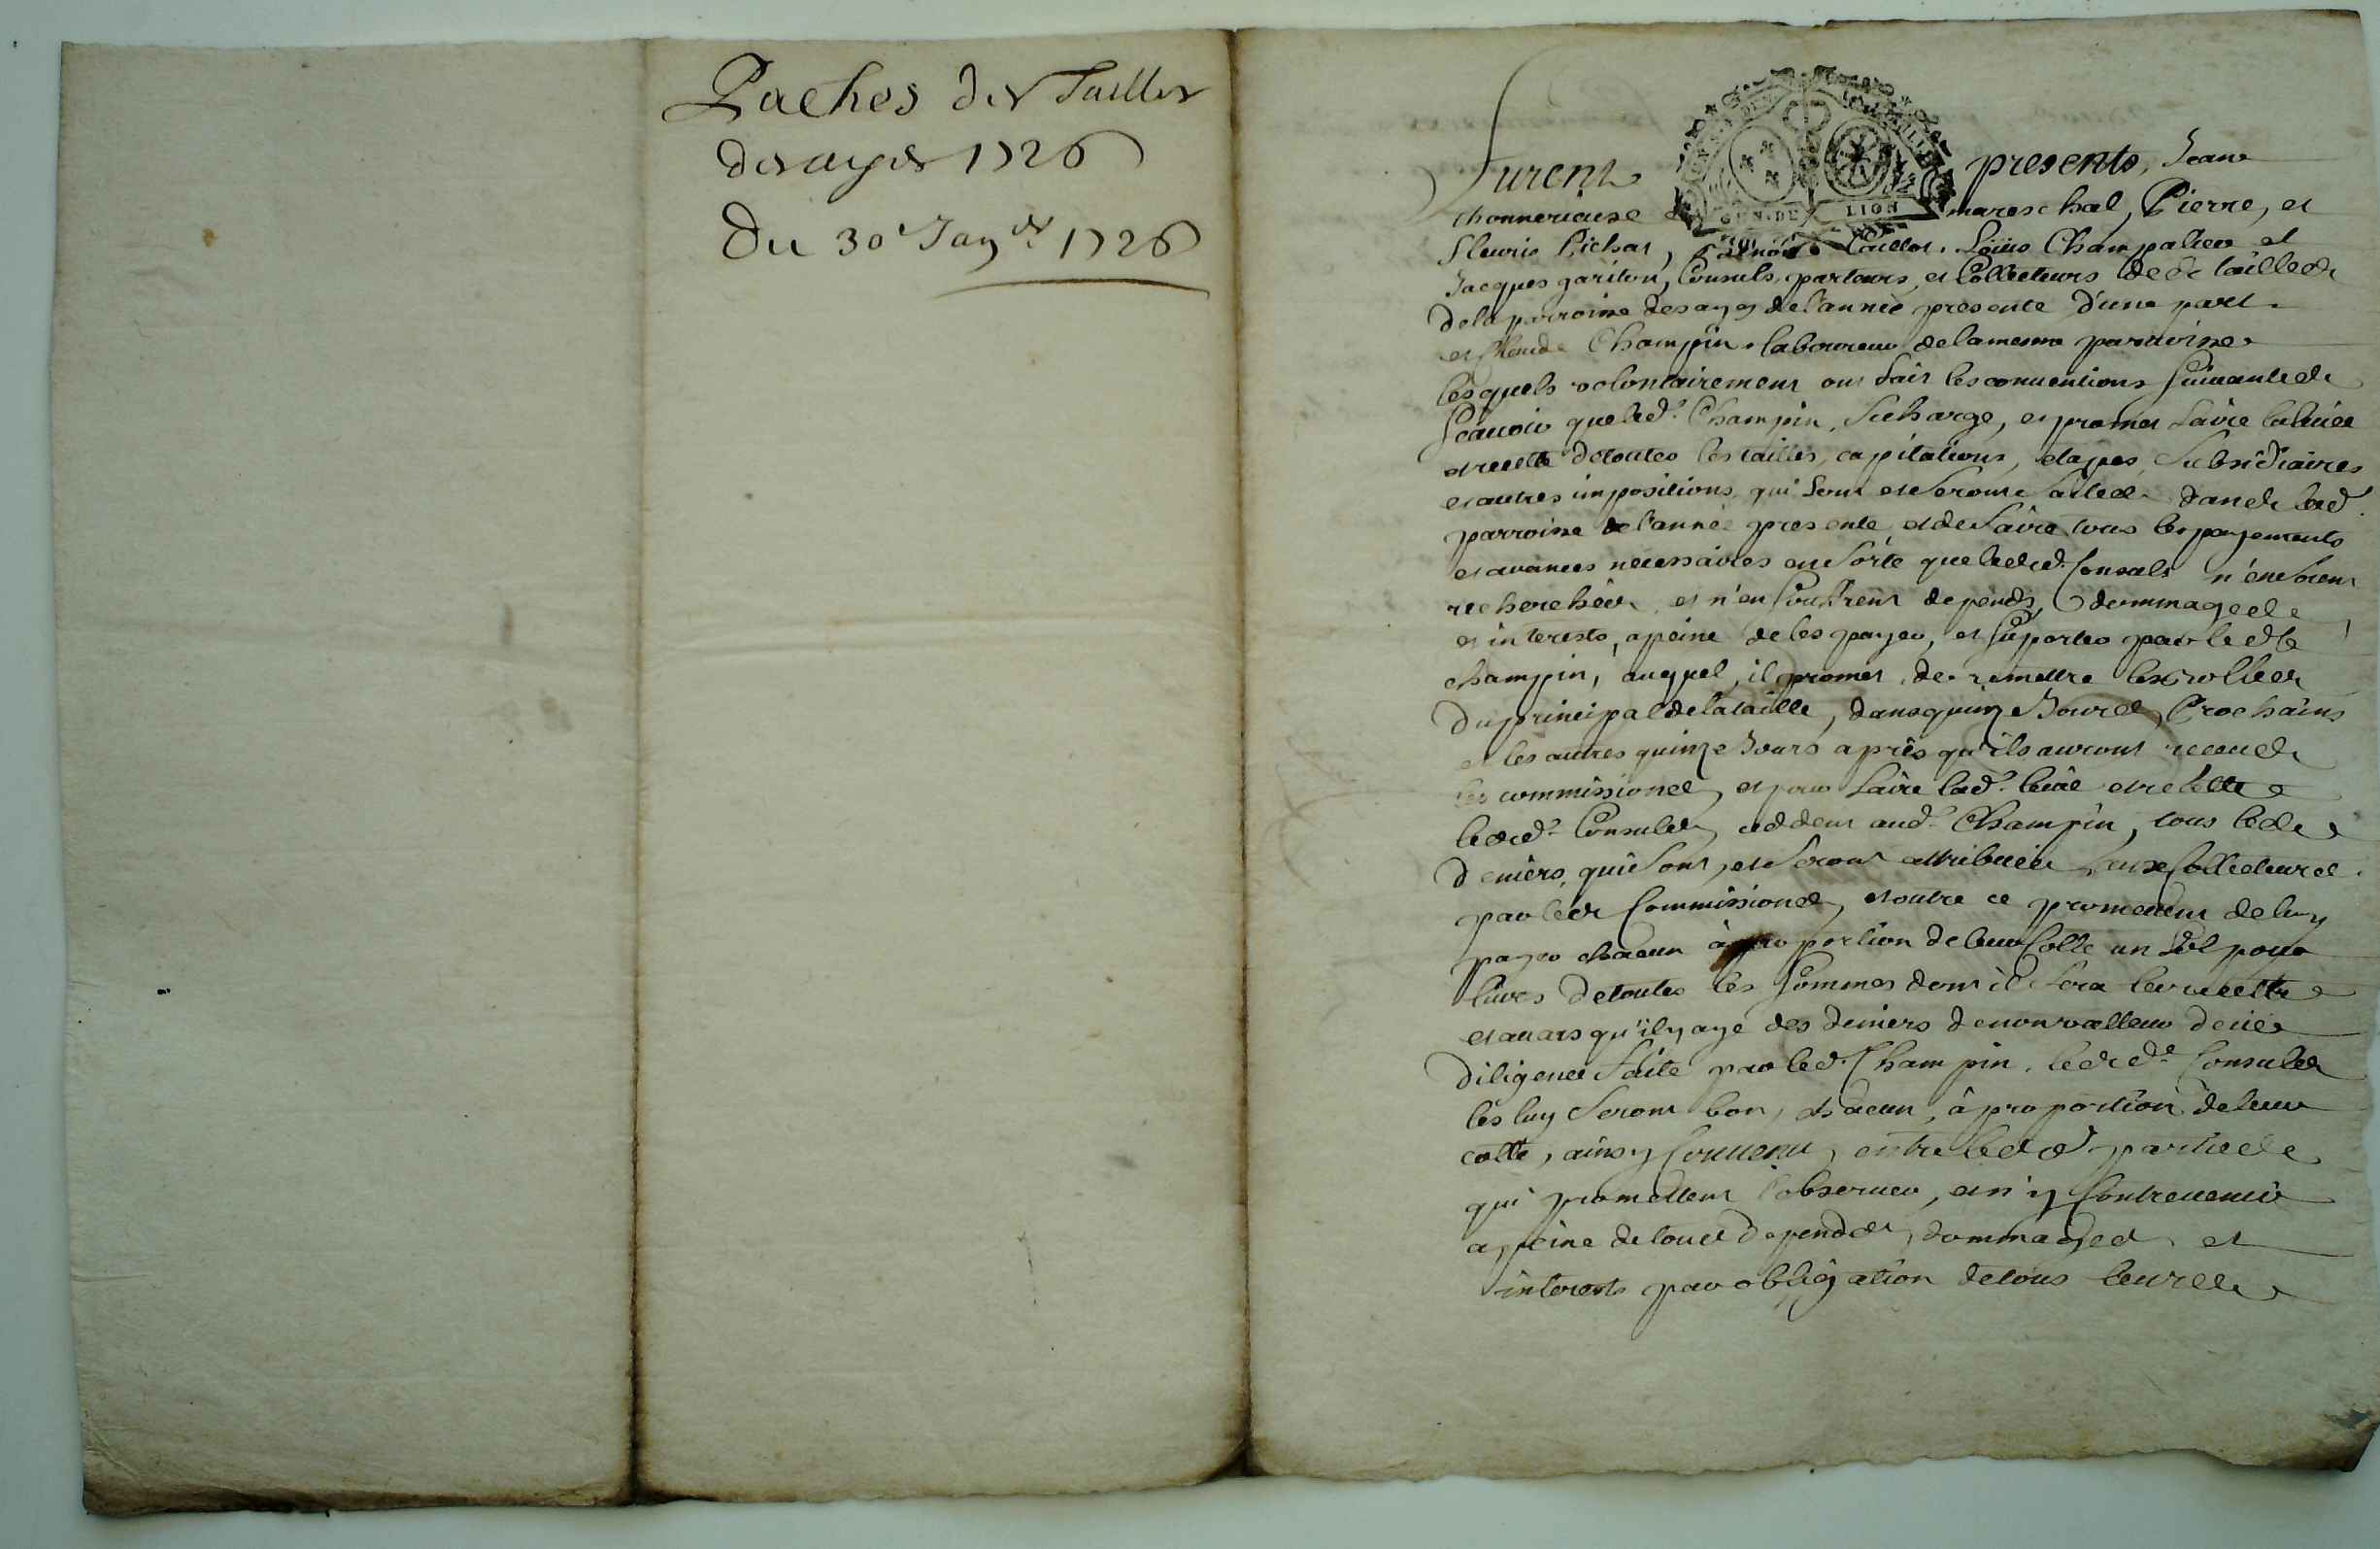 Paches des Tailles
desayes 1726
Du 30e Janv.er 1726
GEN. DE LION
Furent presents, Jean
mareschal, Pierre, et
fleuris Pichat, Louis Champalier et
Jacques gariton, Consuls parteurs, et Collecteurs des tailles
de la parroisse desayes de l'année presente d'une part
et Claude Champin laboureur de la mesme parroisse
lesquels volontairement ont fait les conventions suivantes
Scavoir que led.t Champin, se charge, et promet faire la levée
et recette de toutes les tailles, capitations, etapes, subsidiaires
et autres impositions qui sont et seront faites dans lad.
parroisse de l'année presente, et de faire tous les payements
et avances necessaires en sorte que lesd. Consuls n'en soient
recherchés, et n'en souffrent depends, dommages
et interests, a peine de les payer, et suporter par led.
champin, auquel, il promet de remettre les rolles
du principal de la taille, dans quinze Jours Prochains
et les autres quinze Jours après qu'ils auront receus
les commissions, et pour faire lad.t levée et recette
lesd.t Consuls, ceddent aud.t Champin, tous les
deniers, qui sont, et seront attribués aux Collecteurs
par les Commissions, et outre ce promettent de luy
payer chacun à proportion de leur Cotte un sol pour
livres de toutes les sommes dont il fera la recette
et au cas qu'il y aye des deniers de non valleur deue
diligence faite par led. Champin, lesd.t Consuls
les luy seront bon, chacun, à proportion de leur
cotte, ainsy Convenu, entre lesd. parties
qui promettent l'observer, et n'y Contrevenir
a peine de tous depends, dommages, et
interests par obligation de tous leurs